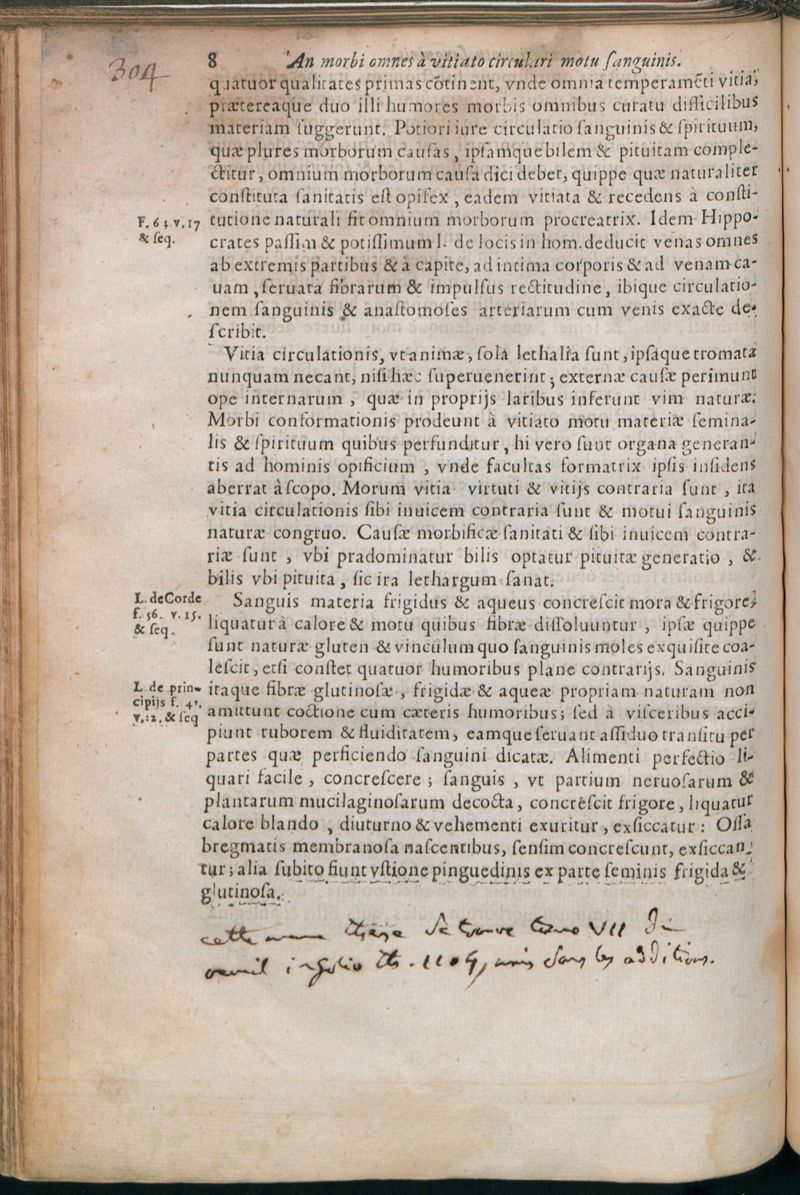 304
8 An morbi omnes à vitiato circulari motu ſanguinis.
quatuor qualitates primas cōtinent, vnde omnia temperamēti vitia,
prætereaque duo illi humores morbis omnibus curatu difficilibus
materiam ſuggerunt. Potiori iure circulatio ſanguinis & ſpirituum,
quæ plures morborum cauſas, ipſamque bilem & pituitam comple-
ctitur, omnium morborum cauſa dici debet, quippe quæ naturaliter
conſtituta ſanitatis eſt opifex, eadem vitiata & recedens à conſti-
F. 64. v. 17 tutione naturali fit omnium morborum procreatrix. Idem Hippo-
& ſeq. crates paſſim & potiſſimum l. de locis in hom. deducit venas omnes
ab extremis partibus & à capite, ad intima corporis & ad venam ca-
uam, ſeruata fibrarum & impulſus rectitudine, ibique circulatio-
nem ſanguinis & anaſtomoſes arteriarum cum venis exacte de-
ſcribit.
Vitia circulationis, vt animæ, ſola lethalia ſunt, ipſaque tromata
nunquam necant, niſi hæc ſuperuenerint; externæ cauſæ perimunt
ope internarum, quæ in proprijs laribus inferunt vim naturæ.
Morbi conformationis prodeunt à vitiato motu materiæ ſemina-
lis & ſpirituum quibus perfunditur, hi vero ſunt organa generan-
tis ad hominis opificium, vnde facultas formatrix ipſis inſidens
aberrat à ſcopo. Morum vitia virtuti & vitijs contraria ſunt, ita
vitia circulationis ſibi inuicem contraria ſunt & motui ſanguinis
naturæ congruo. Cauſæ morbificæ ſanitati & ſibi inuicem contra-
riæ ſunt, vbi prædominatur bilis optatur pituitæ generatio, &
bilis vbi pituita, ſic ira lethargum ſanat.
L. de Corde Sanguis materia frigidus & aqueus concreſcit mora & frigore,
f. 56. v. 15. liquatur à calore & motu quibus fibræ diſſoluuntur, ipſæ quippe
& ſeq. ſunt naturæ gluten & vinculum quo ſanguinis moles exquiſite coa-
leſcit, etſi conſtet quatuor humoribus plane contrarijs. Sanguinis
L. de prin- itaque fibræ glutinoſæ, frigidæ & aqueæ propriam naturam non
cipijs f. 41. amittunt coctione cum cæteris humoribus; ſed à viſceribus acci-
v. 12. & ſeq piunt ruborem & fluiditatem, eamque ſeruant aſſiduo tranſitu per
partes quæ perficiendo ſanguini dicatæ. Alimenti perfectio li-
quari facile, concreſcere; ſanguis, vt partium neruoſarum &
plantarum mucilaginoſarum decocta, concreſcit frigore, liquatur
calore blando, diuturno & vehementi exuritur, exſiccatur: Oſſa
bregmatis membranoſa naſcentibus, ſenſim concreſcunt, exſiccan-
tur; alia ſubito fiunt vſtione pinguedinis ex parte ſeminis frigida &
glutinoſa.
cette meme these se trouve tome VII du
recueil in folio mais dans les additions.